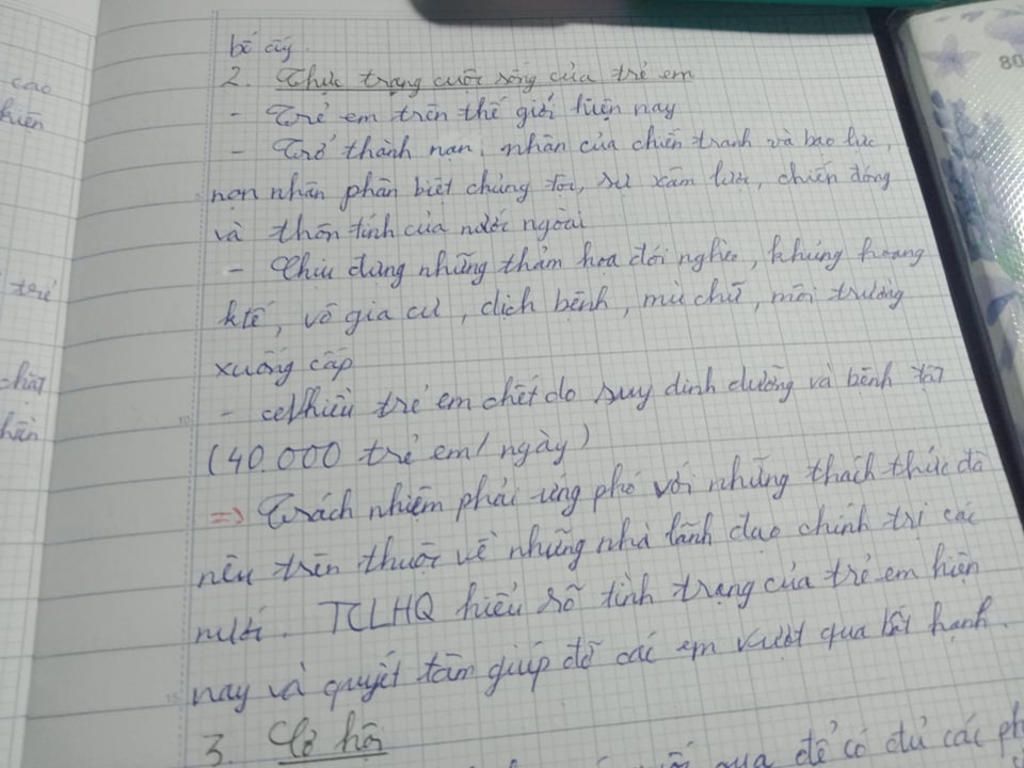 cao
hiện
trẻ
chất
hiện
80
bố cục
2. Thực trạng cuộc sống của trẻ em
- Trẻ em trên thế giới hiện nay
- Trở thành nạn nhân của chiến tranh và bạo lực,
nạn nhân phân biệt chủng tộc, sự xâm lược, chiến đóng
và thôn tính của nước ngoài
- Chịu đựng những thảm họa đói nghèo, khủng hoảng
ktế, vô gia cư, dịch bệnh, mù chữ, môi trường
xuống cấp
- Nhiều trẻ em chết do suy dinh dưỡng và bệnh tật
(40.000 trẻ em/ngày)
=> Trách nhiệm phải ứng phó với những thách thức đã
nêu trên thuộc về những nhà lãnh đạo chính trị các
nước. TCLHQ hiểu rõ tình trạng của trẻ em hiện
nay và quyết tâm giúp đỡ các em vượt qua bất hạnh.
3. Cơ hội
qua để có đủ các